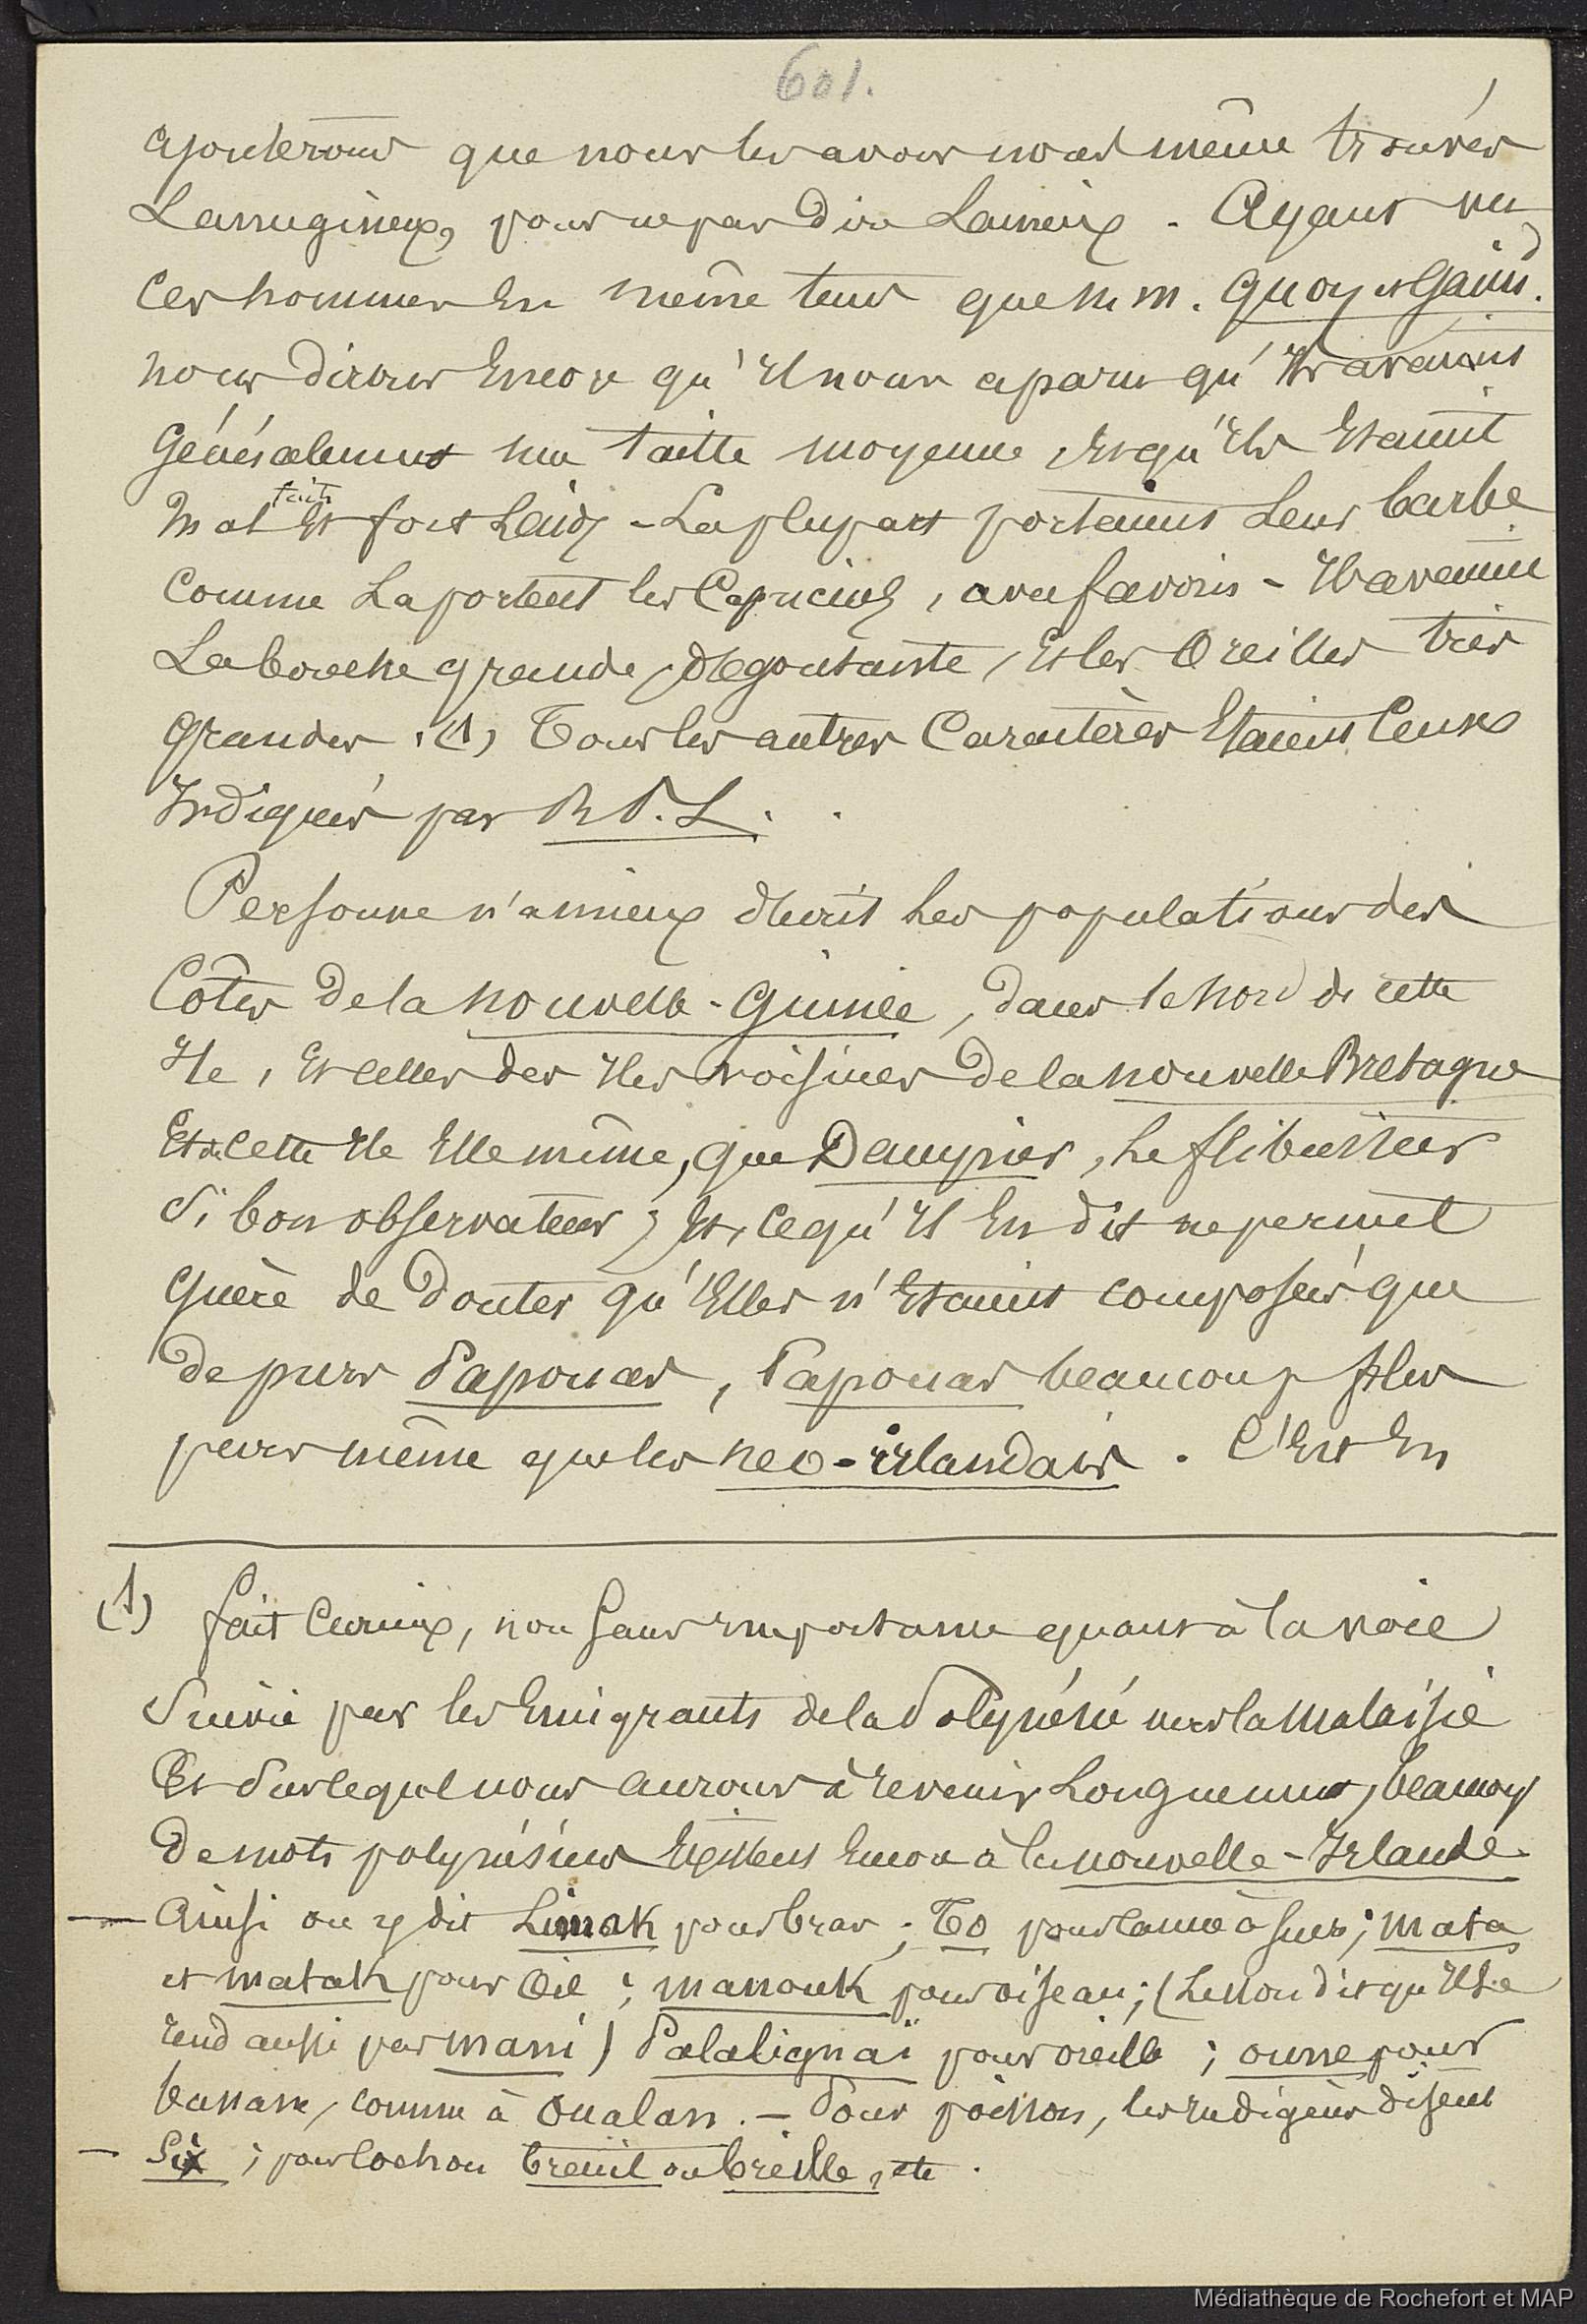 601.
ajouterons que nous les avons nous même trouvés
Lanugineux, pour ne pas dire Laineux. Ayant vu
ces hommes En même tems que m m. Quoy et Gaim.
nous dirons Encore qu'Il nous a paru qu'Ils avaient
Généralement une taille moyenne, Et qu'Ils Etaient
mal faits Et fort Laids - La plupart portaient Leur barbe
comme La portent les Capucins, avec favoris - Ils avaient
La bouche grande, dégoutante, Et les Oreilles très
grandes. (1) Tous les autres Caractères Etaient Ceux
Indiqués par R P. L.
Personne n'a mieux décrit Les populations des
Côtes de la nouvelle-Guinée, dans le nord de cette
Ile, Et celles des Iles voisines de la nouvelle Bretagne
Et de cette Ile Elle même, que Dampier, Le flibustier
Si bon observateur; Et, ce qu'Il En dit ne permet
guère de douter qu'Elles n'Etaient composées que
de purs Papouas, Papouas beaucoup plus
purs même que les neo-irlandais. C'Est En
(1) fait Curieux, non Sans importance quant à la voie
Suivie par les Emigrants de la Polynésie vers la malaisie
Et Sur lequel nous aurons à revenir Longuement, beaucoup
de mots polynésiens Existent Encore à la nouvelle-Irlande.
— Ainsi on y dit Limak pour bras; To pour canne à sucre; mata
et matak pour Oeil; manouk pour oiseau; (Lesson dit qu'Il se
rend aussi par mani) Palalignai pour oreille; oune pour
banane, comme à Oualan. — Pour poisson, les Indigènes disent
— Six; pour cochon breuil ou breille, etc.
Médiathèque de Rochefort et MAP